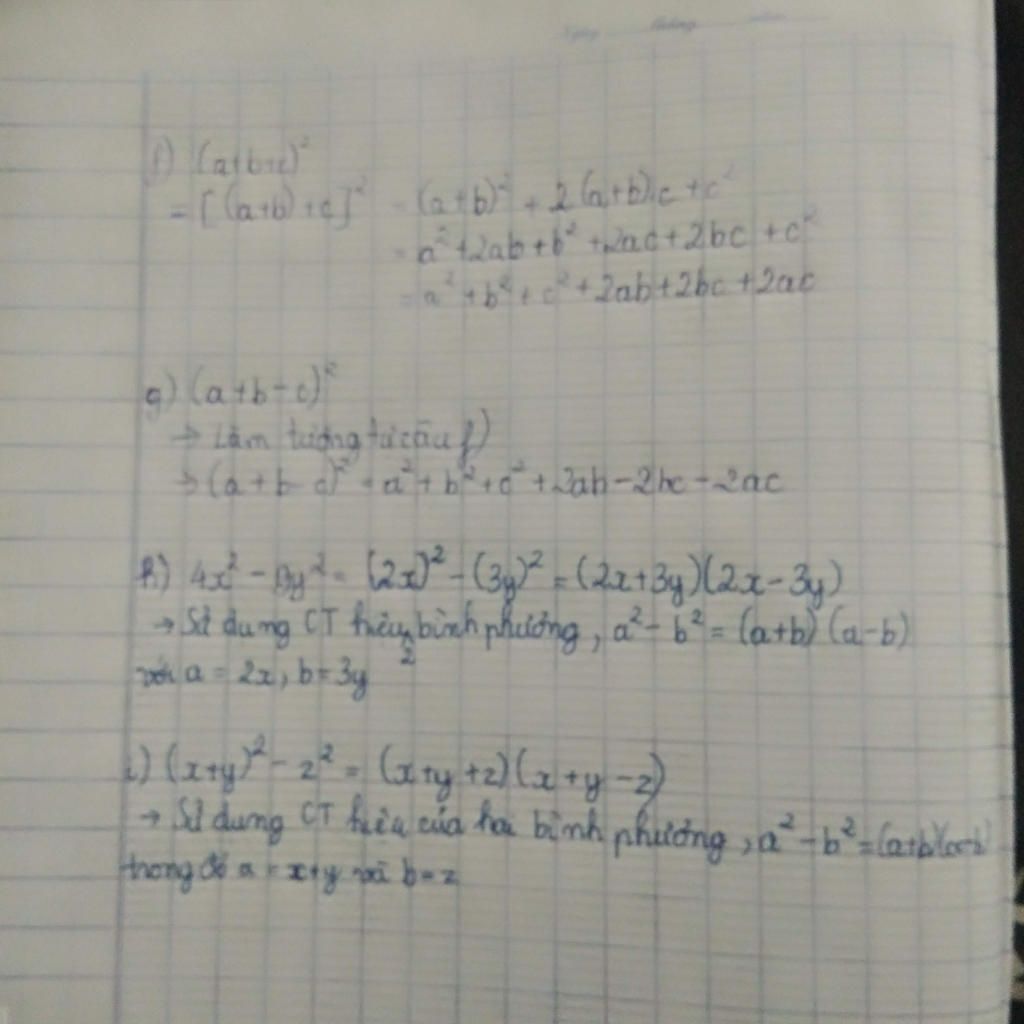 Ngày tháng năm
f) (a+b+c)²
= [(a+b)+c]² = (a+b)² + 2(a+b).c + c²
= a² + 2ab + b² + 2ac + 2bc + c²
= a² + b² + c² + 2ab + 2bc + 2ac
g) (a+b-c)²
→ Làm tương tự câu f)
→ (a+b-c)² = a² + b² + c² + 2ab - 2bc - 2ac
h) 4x² - 9y² = (2x)² - (3y)² = (2x+3y)(2x-3y)
→ Sử dụng CT hiệu 2 bình phương, a² - b² = (a+b)(a-b)
với a = 2x, b = 3y
i) (x+y)² - z² = (x+y+z)(x+y-z)
→ Sử dụng CT hiệu của hai bình phương, a² - b² = (a+b)(a-b)
trong đó a = x+y và b = z